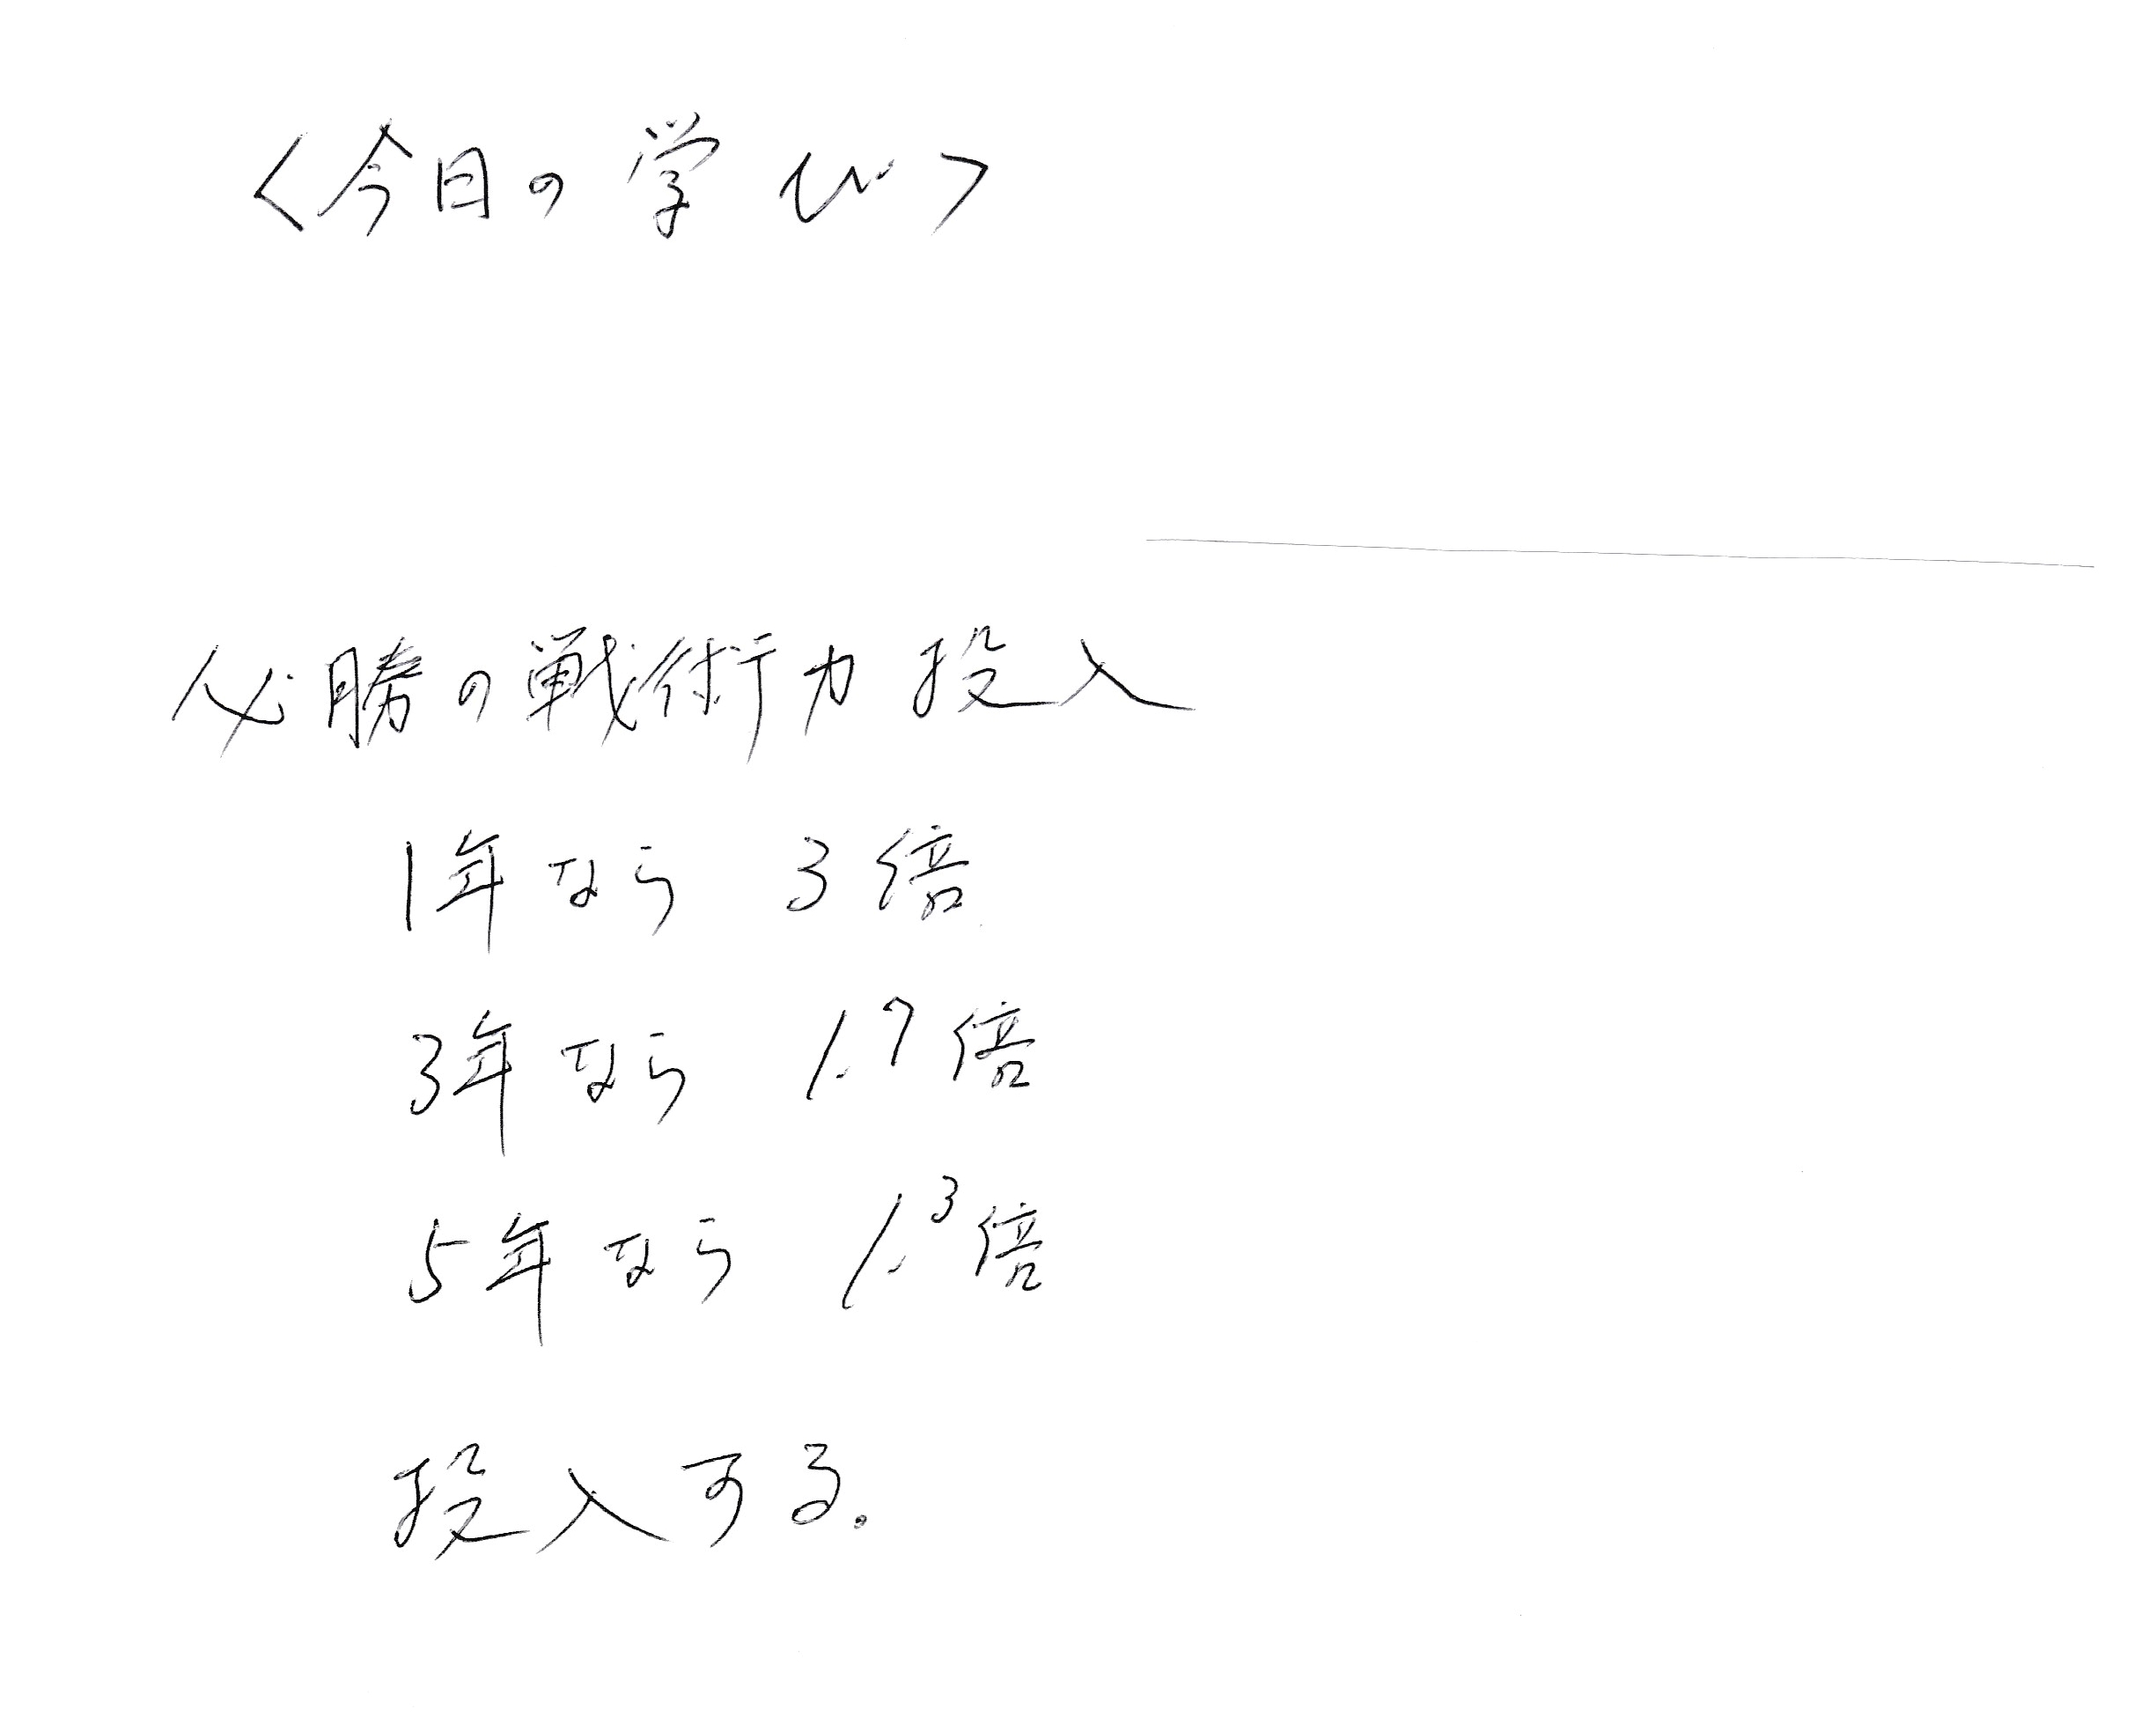 〈今日の学び〉
必勝の戦術力投入
1年なら 3倍
3年なら 1.7倍
5年なら 1.3倍
投入する。